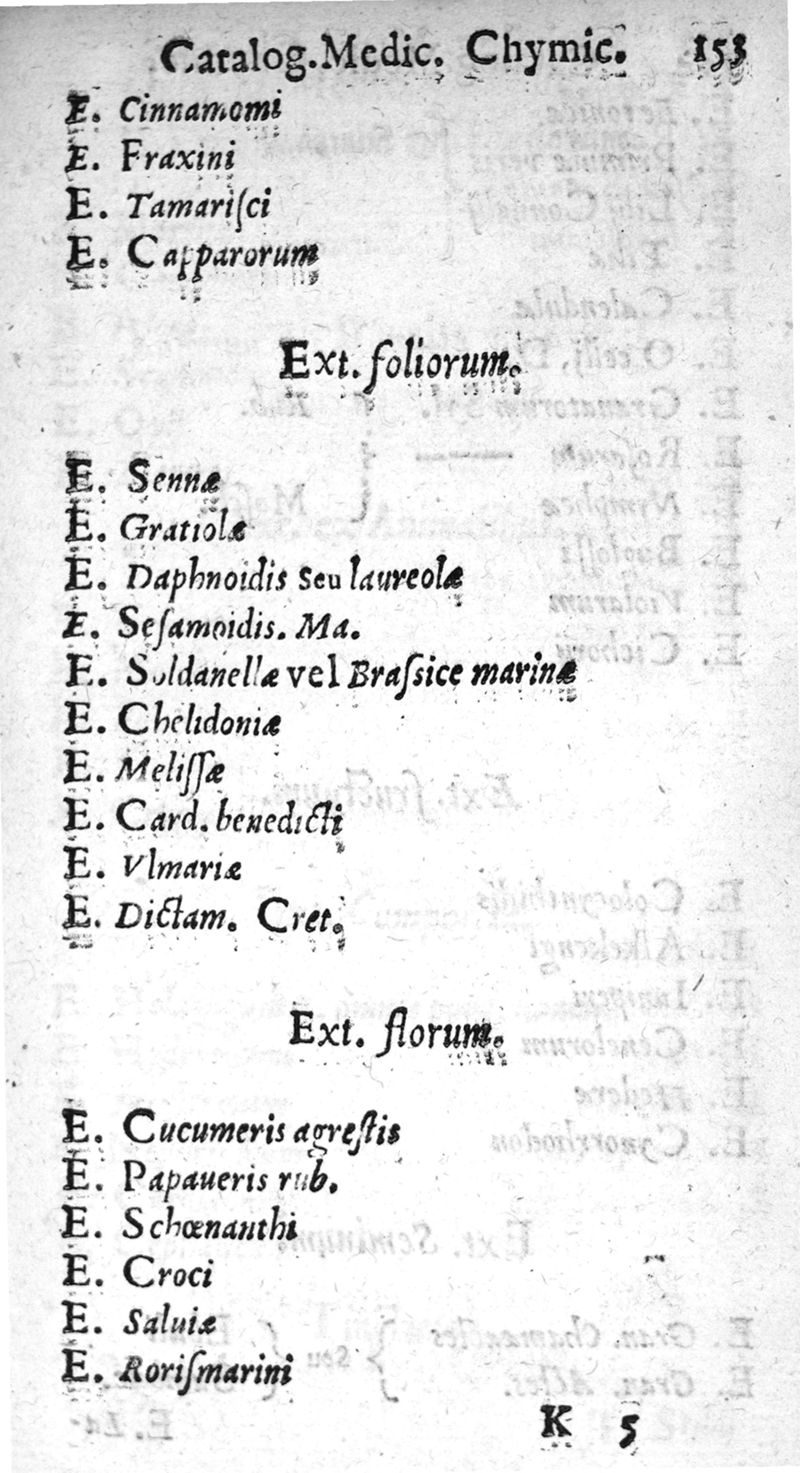 Catalog.Medic. Chymic. 153
E. Cinnamomi
E. Fraxini
E. Tamariſci
E. Capparorum
Ext. foliorum.
E. Sennæ
E. Gratiolæ
E. Daphnoidis seu laureolæ
E. Seſamoidis. Ma.
E. Soldanellæ vel Braſsice marinæ
E. Chelidoniæ
E. Meliſſæ
E. Card. benedicti
E. Vlmariæ
E. Dictam. Cret.
Ext. florum.
E. Cucumeris agreſtis
E. Papaueris rub.
E. Schœnanthi
E. Croci
E. Saluiæ
E. Roriſmarini
K 5